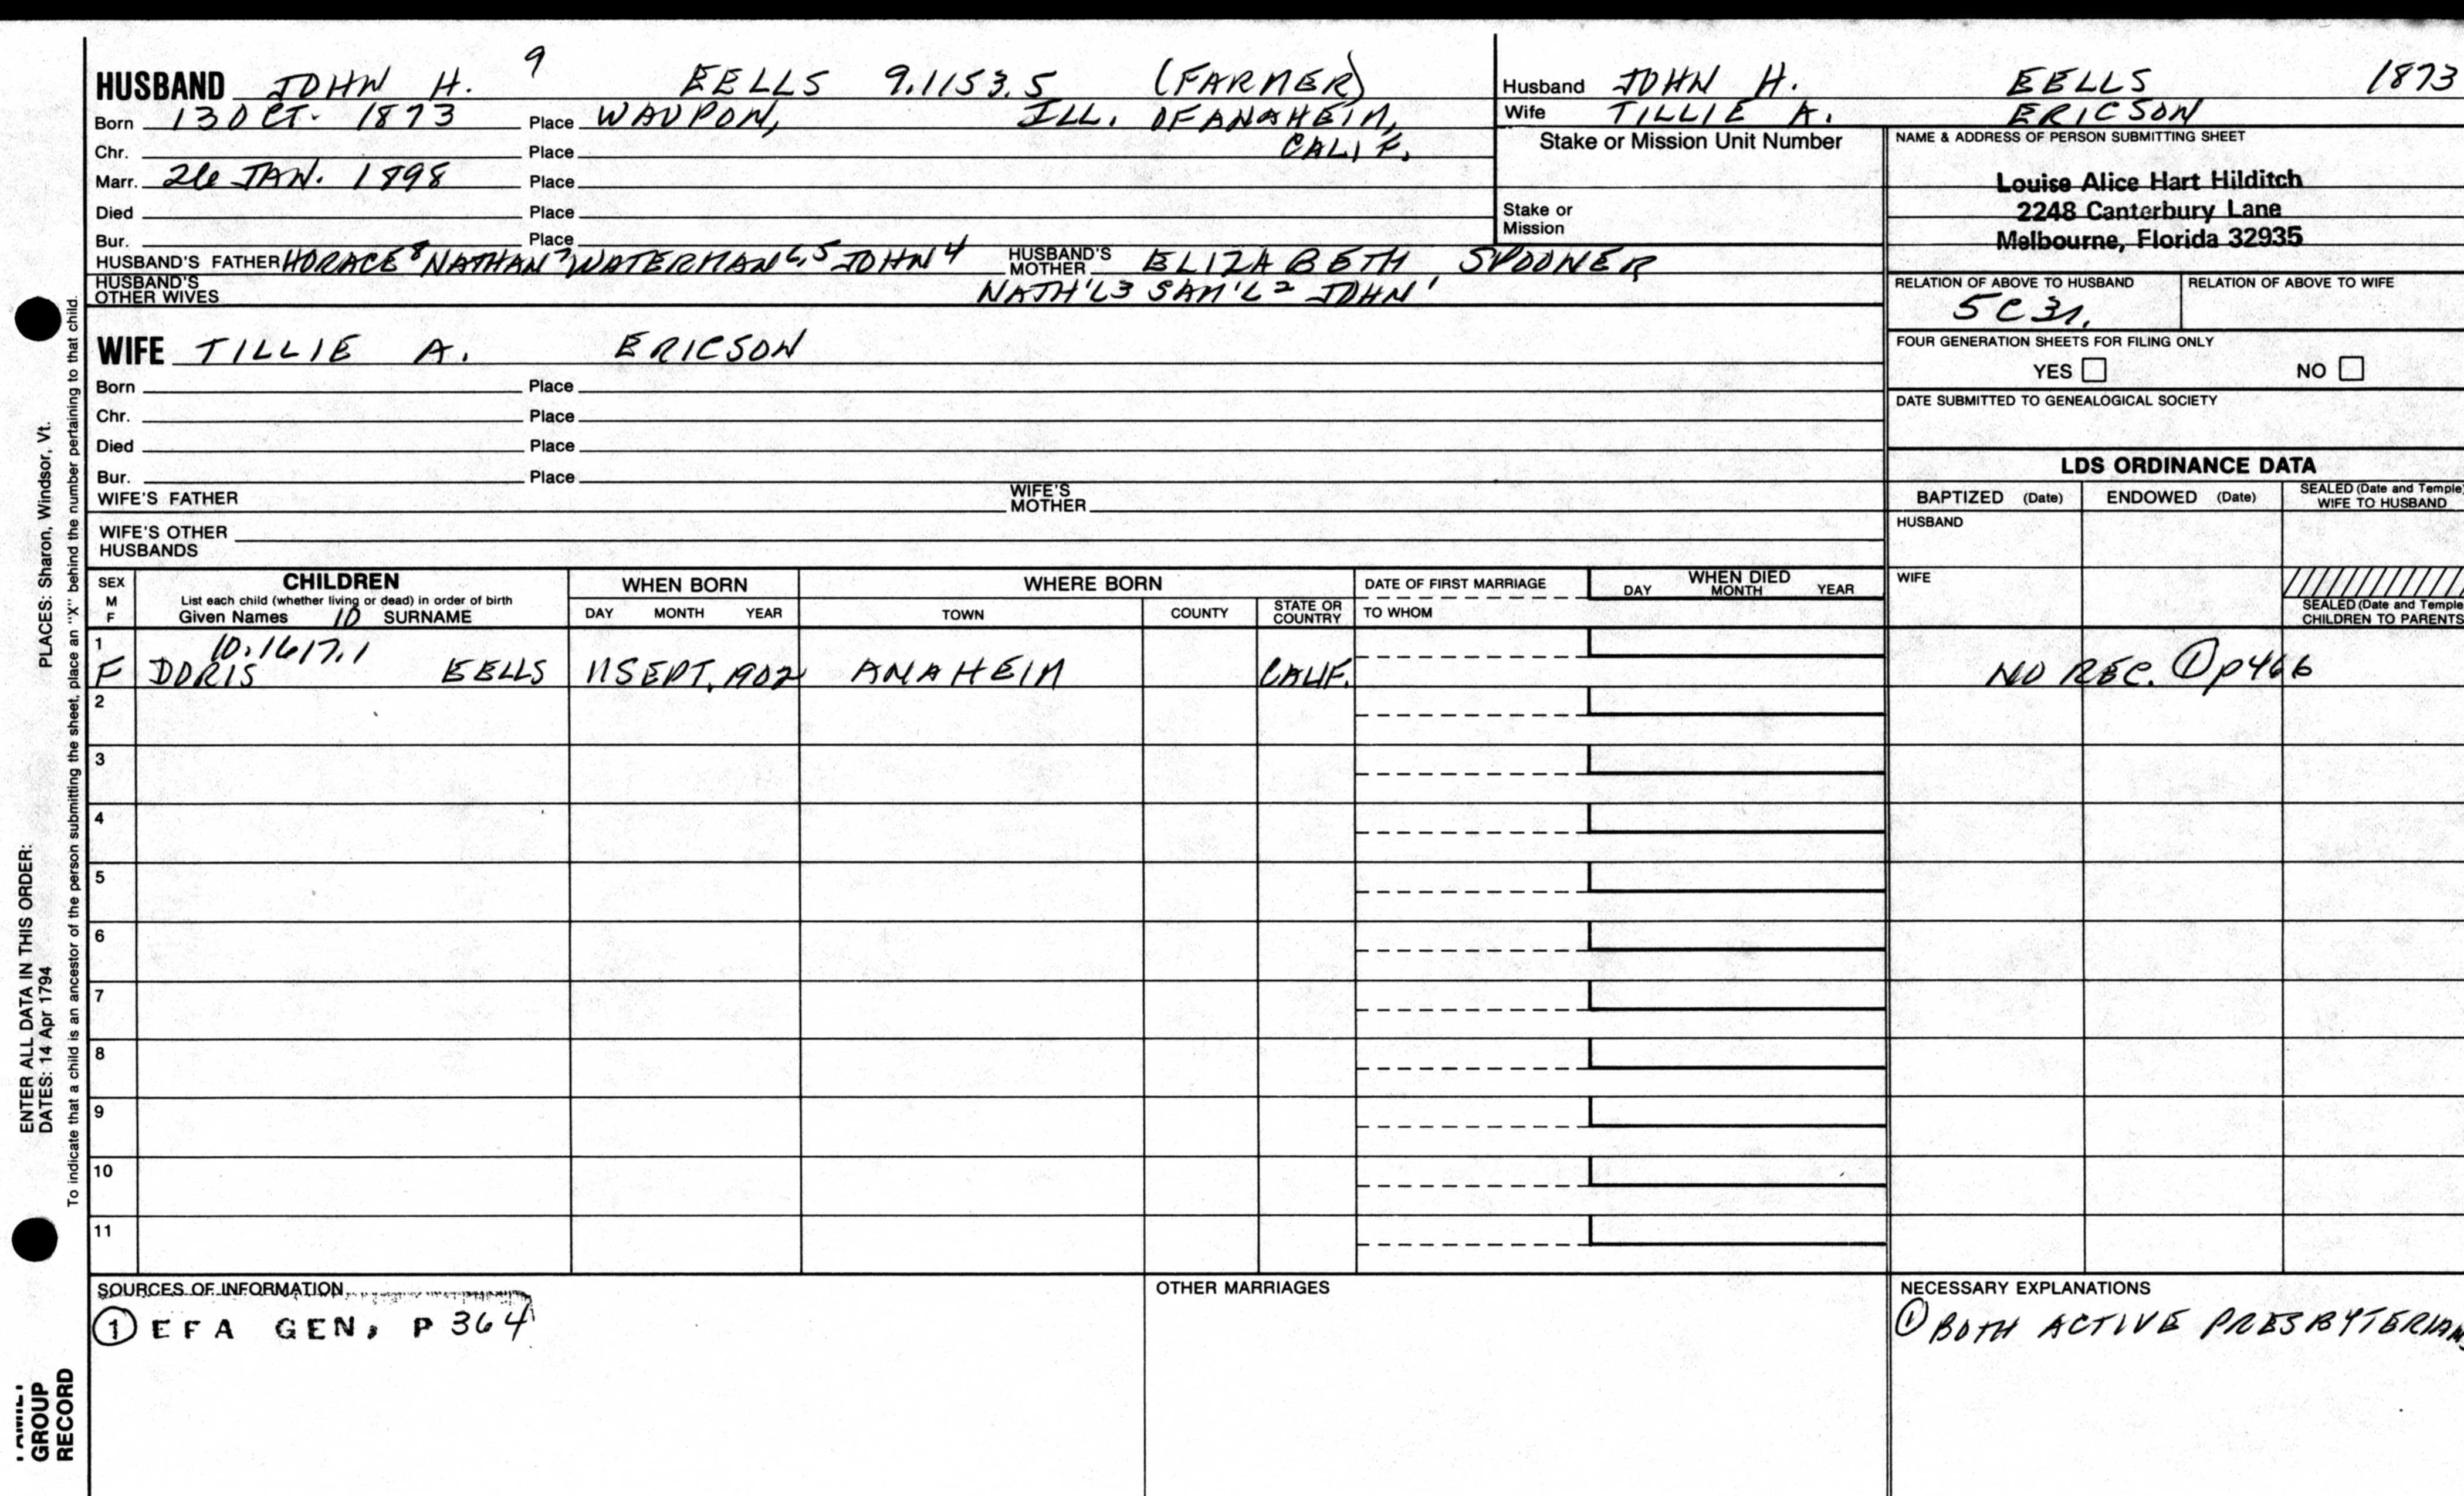 HUSBAND JOHN H. 9 EELLS 9.1153.5 (FARMER)
Born 13 OCT. 1873 Place WAUPON, ILL. OF ANAHEIM,
Chr. Place CALIF.
Marr. 26 JAN. 1898 Place
Died Place
Bur. Place
HUSBAND'S FATHER HORACE 8 NATHAN 7 WATERMAN 6,5 JOHN 4 HUSBAND'S MOTHER ELIZABETH SPOONER
HUSBAND'S OTHER WIVES NATH'L 3 SAM'L 2 JOHN 1
Husband JOHN H. EELLS 1873
Wife TILLIE A. ERICSON
Stake or Mission Unit Number
Stake or
Mission
NAME & ADDRESS OF PERSON SUBMITTING SHEET
Louise Alice Hart Hilditch
2248 Canterbury Lane
Melbourne, Florida 32935
RELATION OF ABOVE TO HUSBAND RELATION OF ABOVE TO WIFE
5C3r.
FOUR GENERATION SHEETS FOR FILING ONLY
YES NO
DATE SUBMITTED TO GENEALOGICAL SOCIETY
WIFE TILLIE A. ERICSON
Born Place
Chr. Place
Died Place
Bur. Place
WIFE'S FATHER WIFE'S MOTHER
WIFE'S OTHER
HUSBANDS
LDS ORDINANCE DATA
BAPTIZED (Date) ENDOWED (Date) SEALED (Date and Temple) WIFE TO HUSBAND
HUSBAND
WIFE
SEALED (Date and Temple) CHILDREN TO PARENTS
SEX M F
CHILDREN
List each child (whether living or dead) in order of birth
Given Names 10 SURNAME
WHEN BORN
DAY MONTH YEAR
WHERE BORN
TOWN COUNTY STATE OR COUNTRY
DATE OF FIRST MARRIAGE
TO WHOM
WHEN DIED
DAY MONTH YEAR
1 10.1617.1
F DORIS EELLS 11 SEPT. 1902 ANAHEIM CALIF. NO REC. ① p466
2
3
4
5
6
7
8
9
10
11
SOURCES OF INFORMATION
① EFA GEN, P 364
OTHER MARRIAGES
NECESSARY EXPLANATIONS
① BOTH ACTIVE PRESBYTERIANS
ENTER ALL DATA IN THIS ORDER:
DATES: 14 Apr 1794 PLACES: Sharon, Windsor, Vt.
To indicate that a child is an ancestor of the person submitting the sheet, place an "X" behind the number pertaining to that child.
FAMILY
GROUP
RECORD